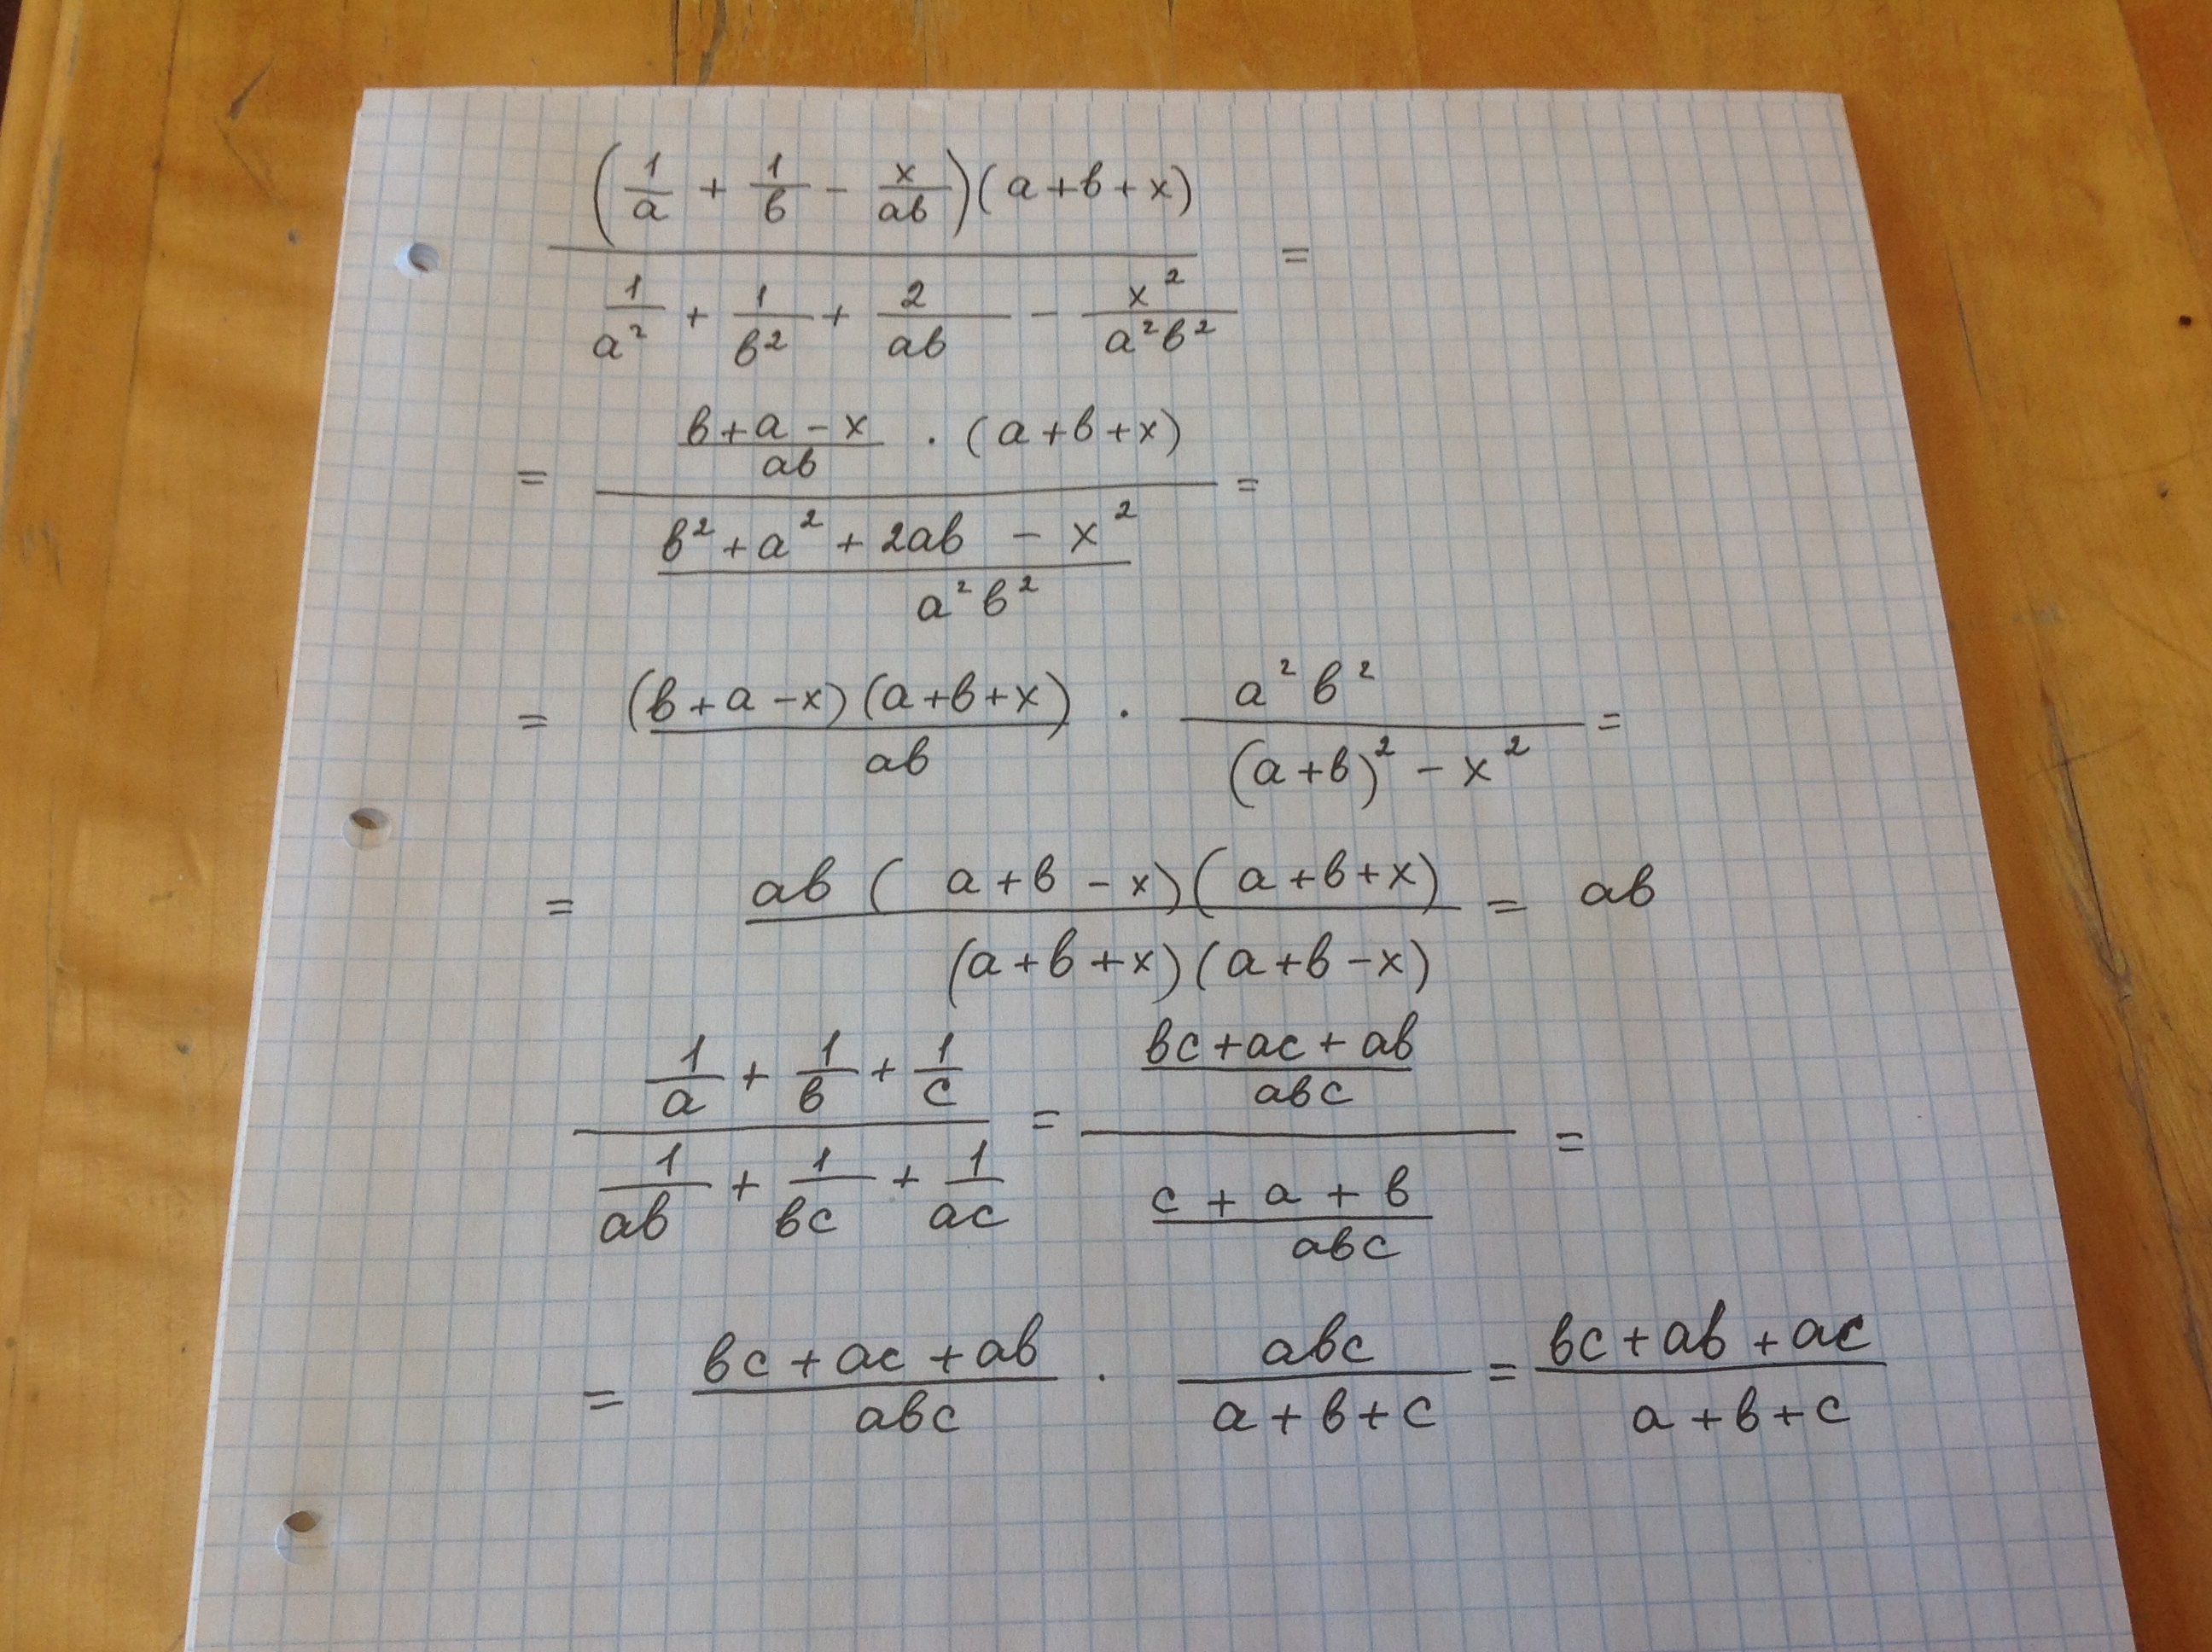 (1/a + 1/b - x/ab)(a+b+x) / (1/a² + 1/b² + 2/ab - x²/a²b²) =
= ((b+a-x)/ab · (a+b+x)) / ((b²+a²+2ab - x²)/a²b²) =
= (b+a-x)(a+b+x)/ab · a²b²/((a+b)² - x²) =
= ab(a+b-x)(a+b+x) / (a+b+x)(a+b-x) = ab
(1/a + 1/b + 1/c) / (1/ab + 1/bc + 1/ac) = ((bc+ac+ab)/abc) / ((c+a+b)/abc) =
= (bc+ac+ab)/abc · abc/(a+b+c) = (bc+ab+ac)/(a+b+c)